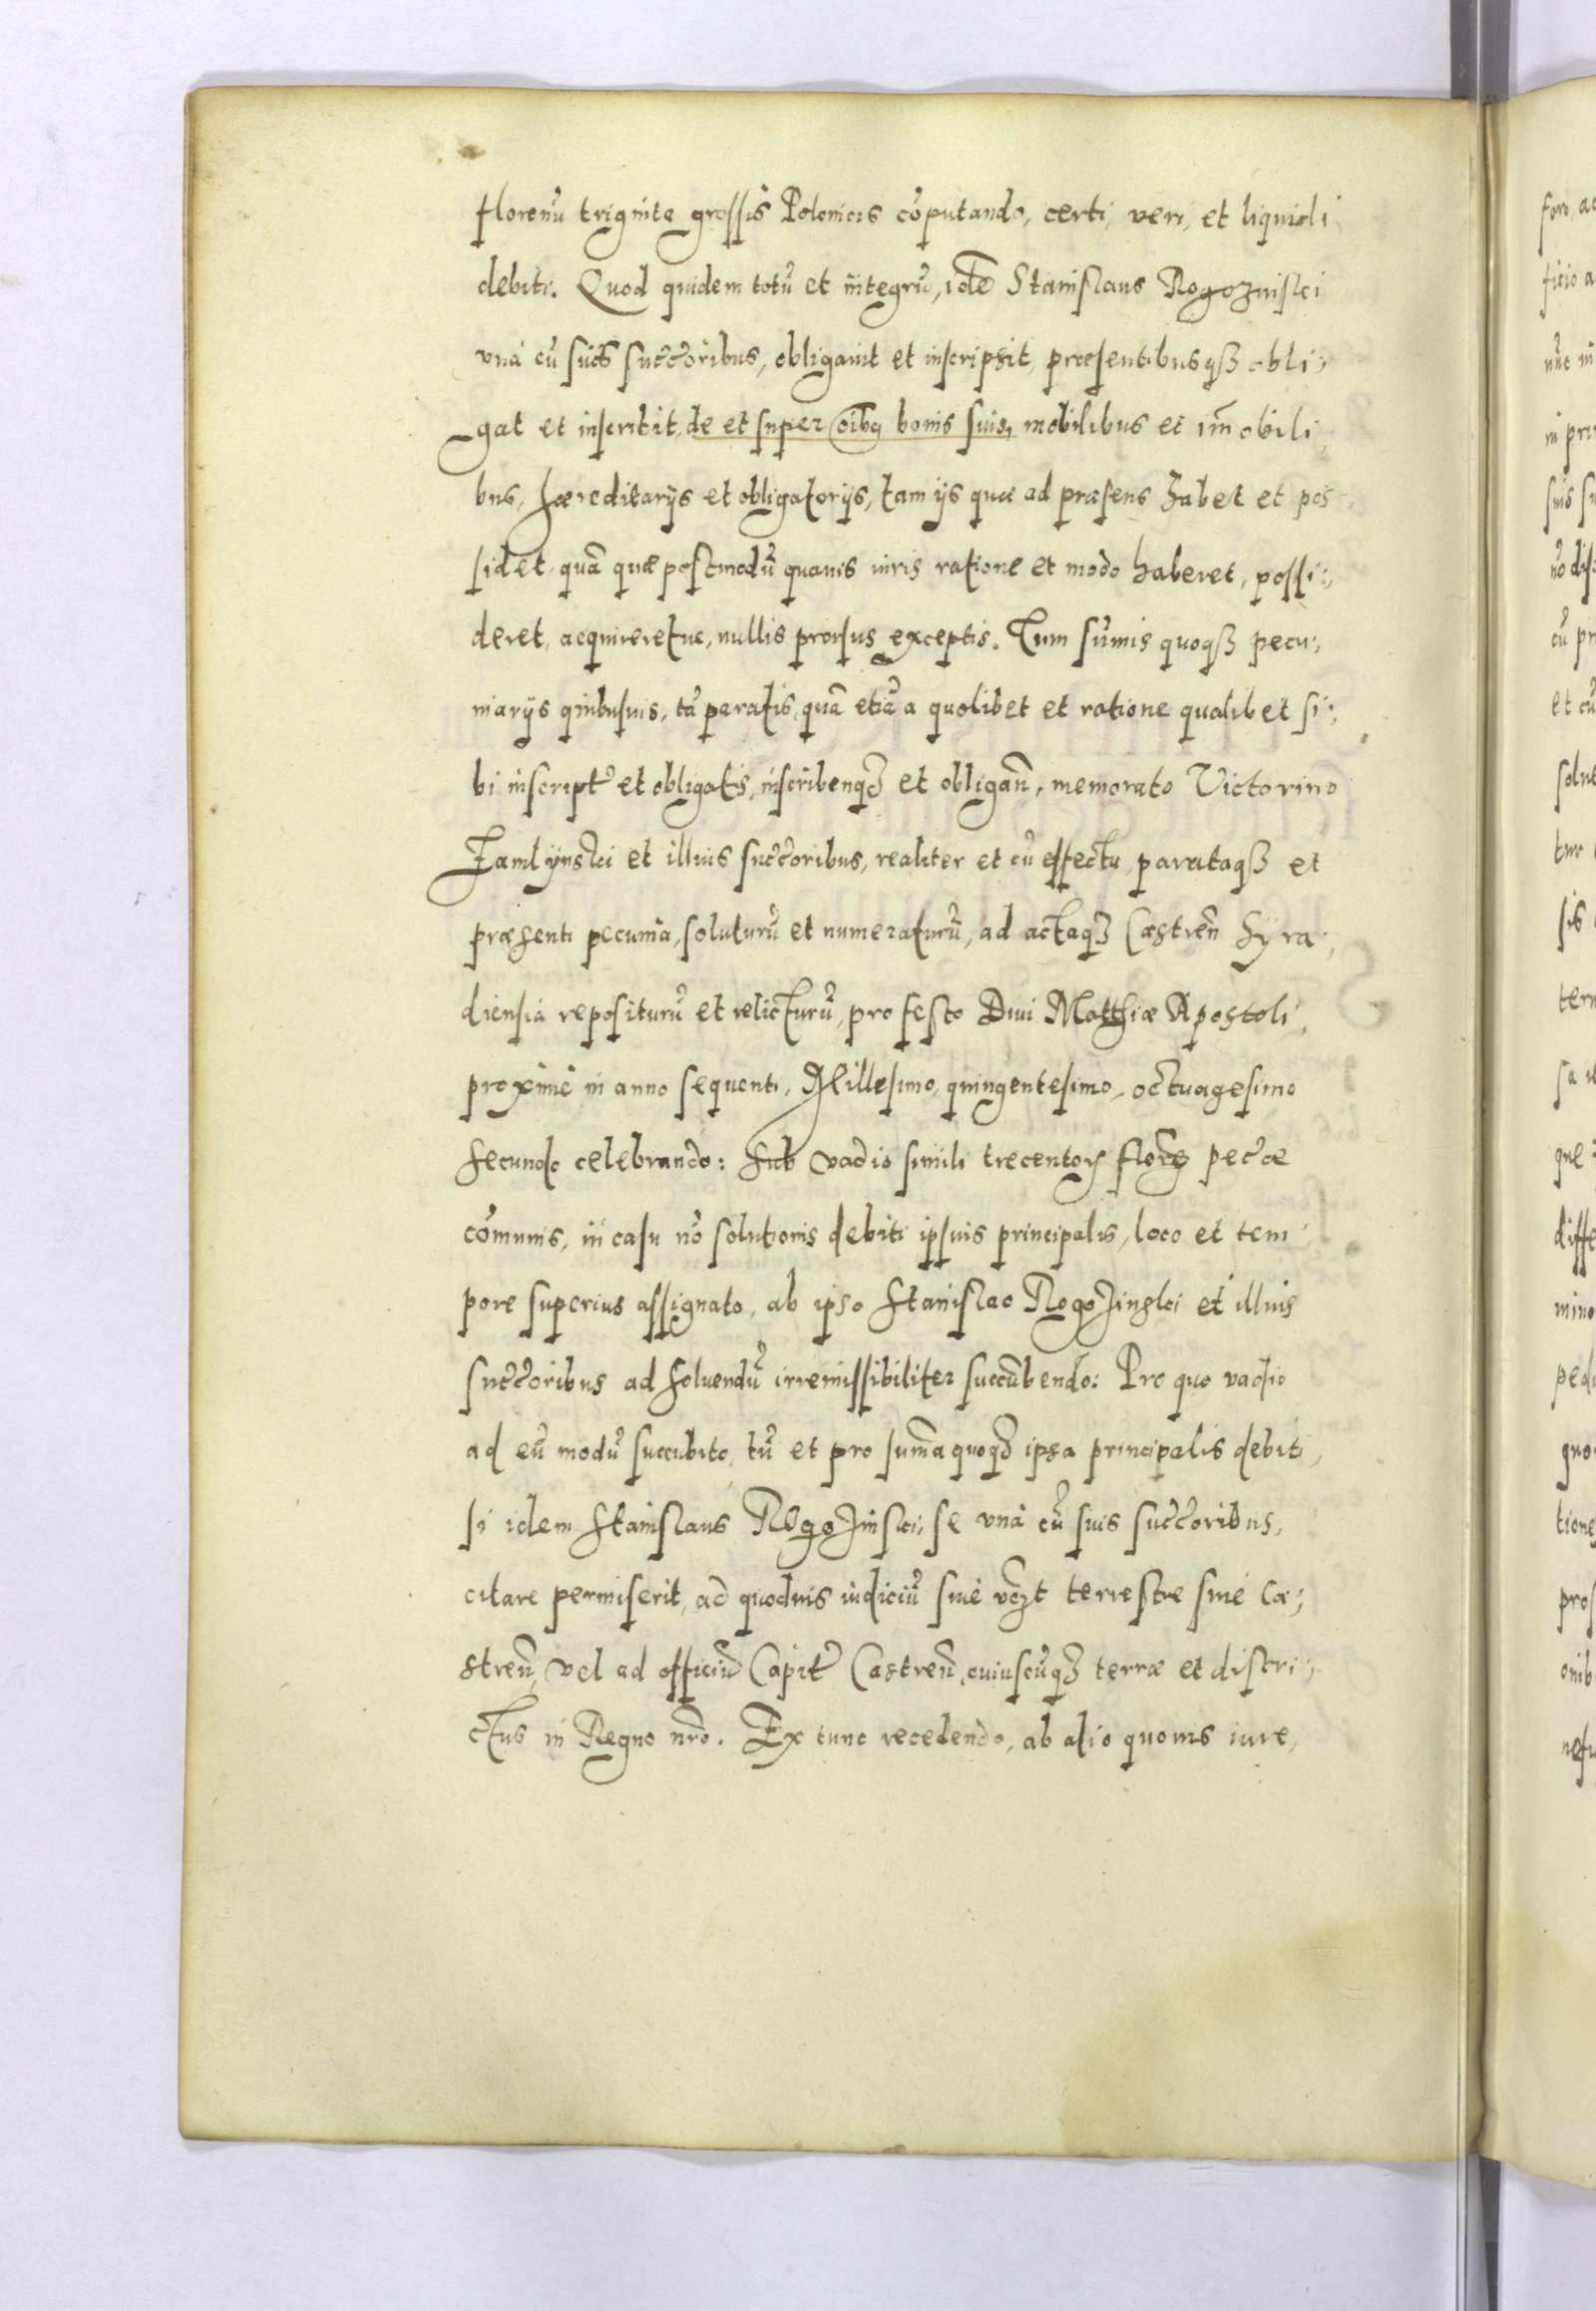 florenũ triginta grossis Polonicis cõputando, certi, veri, et liquidi
debiti. Quod quidem totũ et integrũ, idẽ Stanislaus Rogoznisci
vnà cũ suis succ̃oribus, obligauit et inscripsit, præsentibusqȝ obli:
gat et inscribit, de et super oĩbq bonis suis, mobilibus et im̃obili
bus, hæreditarijs et obligatorijs, tam ijs quæ ad præsens habet et pos
sidet quã quæ postmodũ quauis iuris ratione et modo haberet, possi:
deret, acquireretue, nullis prorsus exceptis. Tum sũmis quoqȝ pecu:
niarijs quibusuis, tã paratis, quã etiã a quolibet et ratione qualibet si:
bi inscript̃ et obligatis, inscribenqȝ et obligañ, memorato Victorino
Zamlÿnski et illius succ̃oribus, realiter et cũ effectu, parataqȝ et
præsenti pecunia, soluturũ et numeraturũ, ad actaqȝ Castreñ Syra:
diensia repositurũ et relicturũ, pro festo Diui Matthiæ Apostoli
proximè in anno sequenti, Millesimo, quingentesimo, octuagesimo
secundo celebrando: sub vadio simili trecentoꝝ floreꝝ pec̃æ
cõmunis, in casu nõ solutionis debiti ipsius principalis, loco et tem
pore superius assignato, ab ipso Stanislao Rogozinski et illius
succ̃oribus ad soluendũ irremissibiliter succũbendo: Pro quo vadio
ad eũ modũ succubito, tũ et pro sum̃a quoqȝ ipsa principalis debiti,
si idem Stanislaus Rogozinsci, se vnà cũ suis succ̃oribus,
citare permiserit, ad quoduis iudiciũ siue vczt terrestre siue Ca:
streñ, vel ad officiũ Capit̃ Castreñ, cuiuscũqȝ terræ et distri:
ctus in Regno nr̃o. Ex tunc recedendo, ab alio quouis iure,